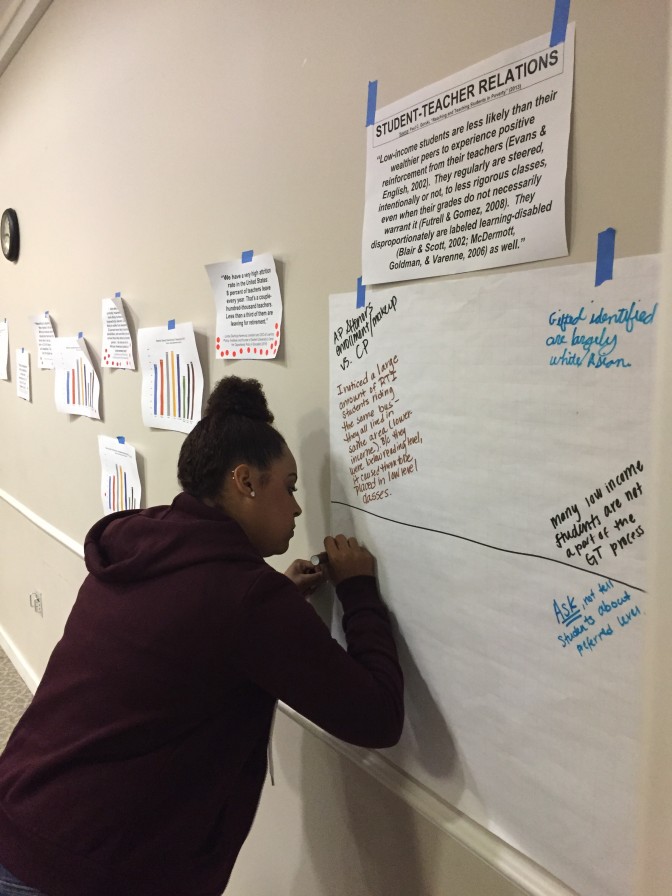 STUDENT-TEACHER RELATIONS
Source: Paul C. Gorski, "Reaching and Teaching Students in Poverty" (2013)
"Low-income students are less likely than their
wealthier peers to experience positive
reinforcement from their teachers (Evans &
English, 2002). They regularly are steered,
intentionally or not, to less rigorous classes,
even when their grades do not necessarily
warrant it (Futrell & Gomez, 2008). They
disproportionately are labeled learning-disabled
(Blair & Scott, 2002; McDermott,
Goldman, & Varenne, 2006) as well."
"We have a very high attrition
rate in the United States
8 percent of teachers leave
every year. That's a couple-
hundred-thousand teachers.
Less than a third of them are
leaving for retirement."
AP & Honors
enrollment/makeup
vs. CP
I noticed a large
amount of RTI
students riding
the same bus-
they all lived in
same area (lower
income). B/c they
were below reading level,
it caused them to be
placed in low level
classes.
Gifted identified
are largely
white/Asian.
many low income
students are not
a part of the
GT process
Ask, not tell
students about
preferred level.